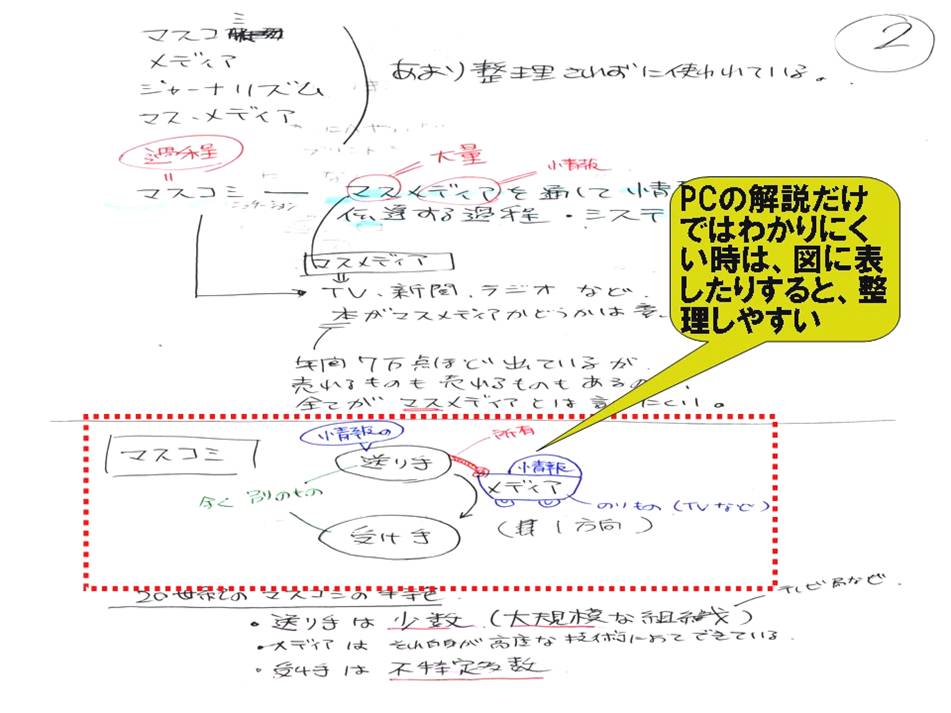 2
マスコミ
メディア
ジャーナリズム
マス・メディア
あまり整理されずに使われている。
過程
大量
情報
マスコミ ― マスメディアを通して 情
ニケーション
伝達する過程・システ
マスメディア
TV、新聞、ラジオ など、
本がマスメディアかどうかは
年間7万点ほど出ているが
売れるものも売れるものもあるの
全てが マスメディアとは言
PCの解説だけ
ではわかりにく
い時は、図に表
したりすると、整
理しやすい
マスコミ
情報の
送り手
所有
情報
メディア
のりもの(TVなど)
全く別のもの
受け手
1方向)
20世紀の マスコミの
テレビ局など
・送り手は 少数 (大規模な組織)
・メディアは それ自身が高度な技術によってできている
・受け手は 不特定多数